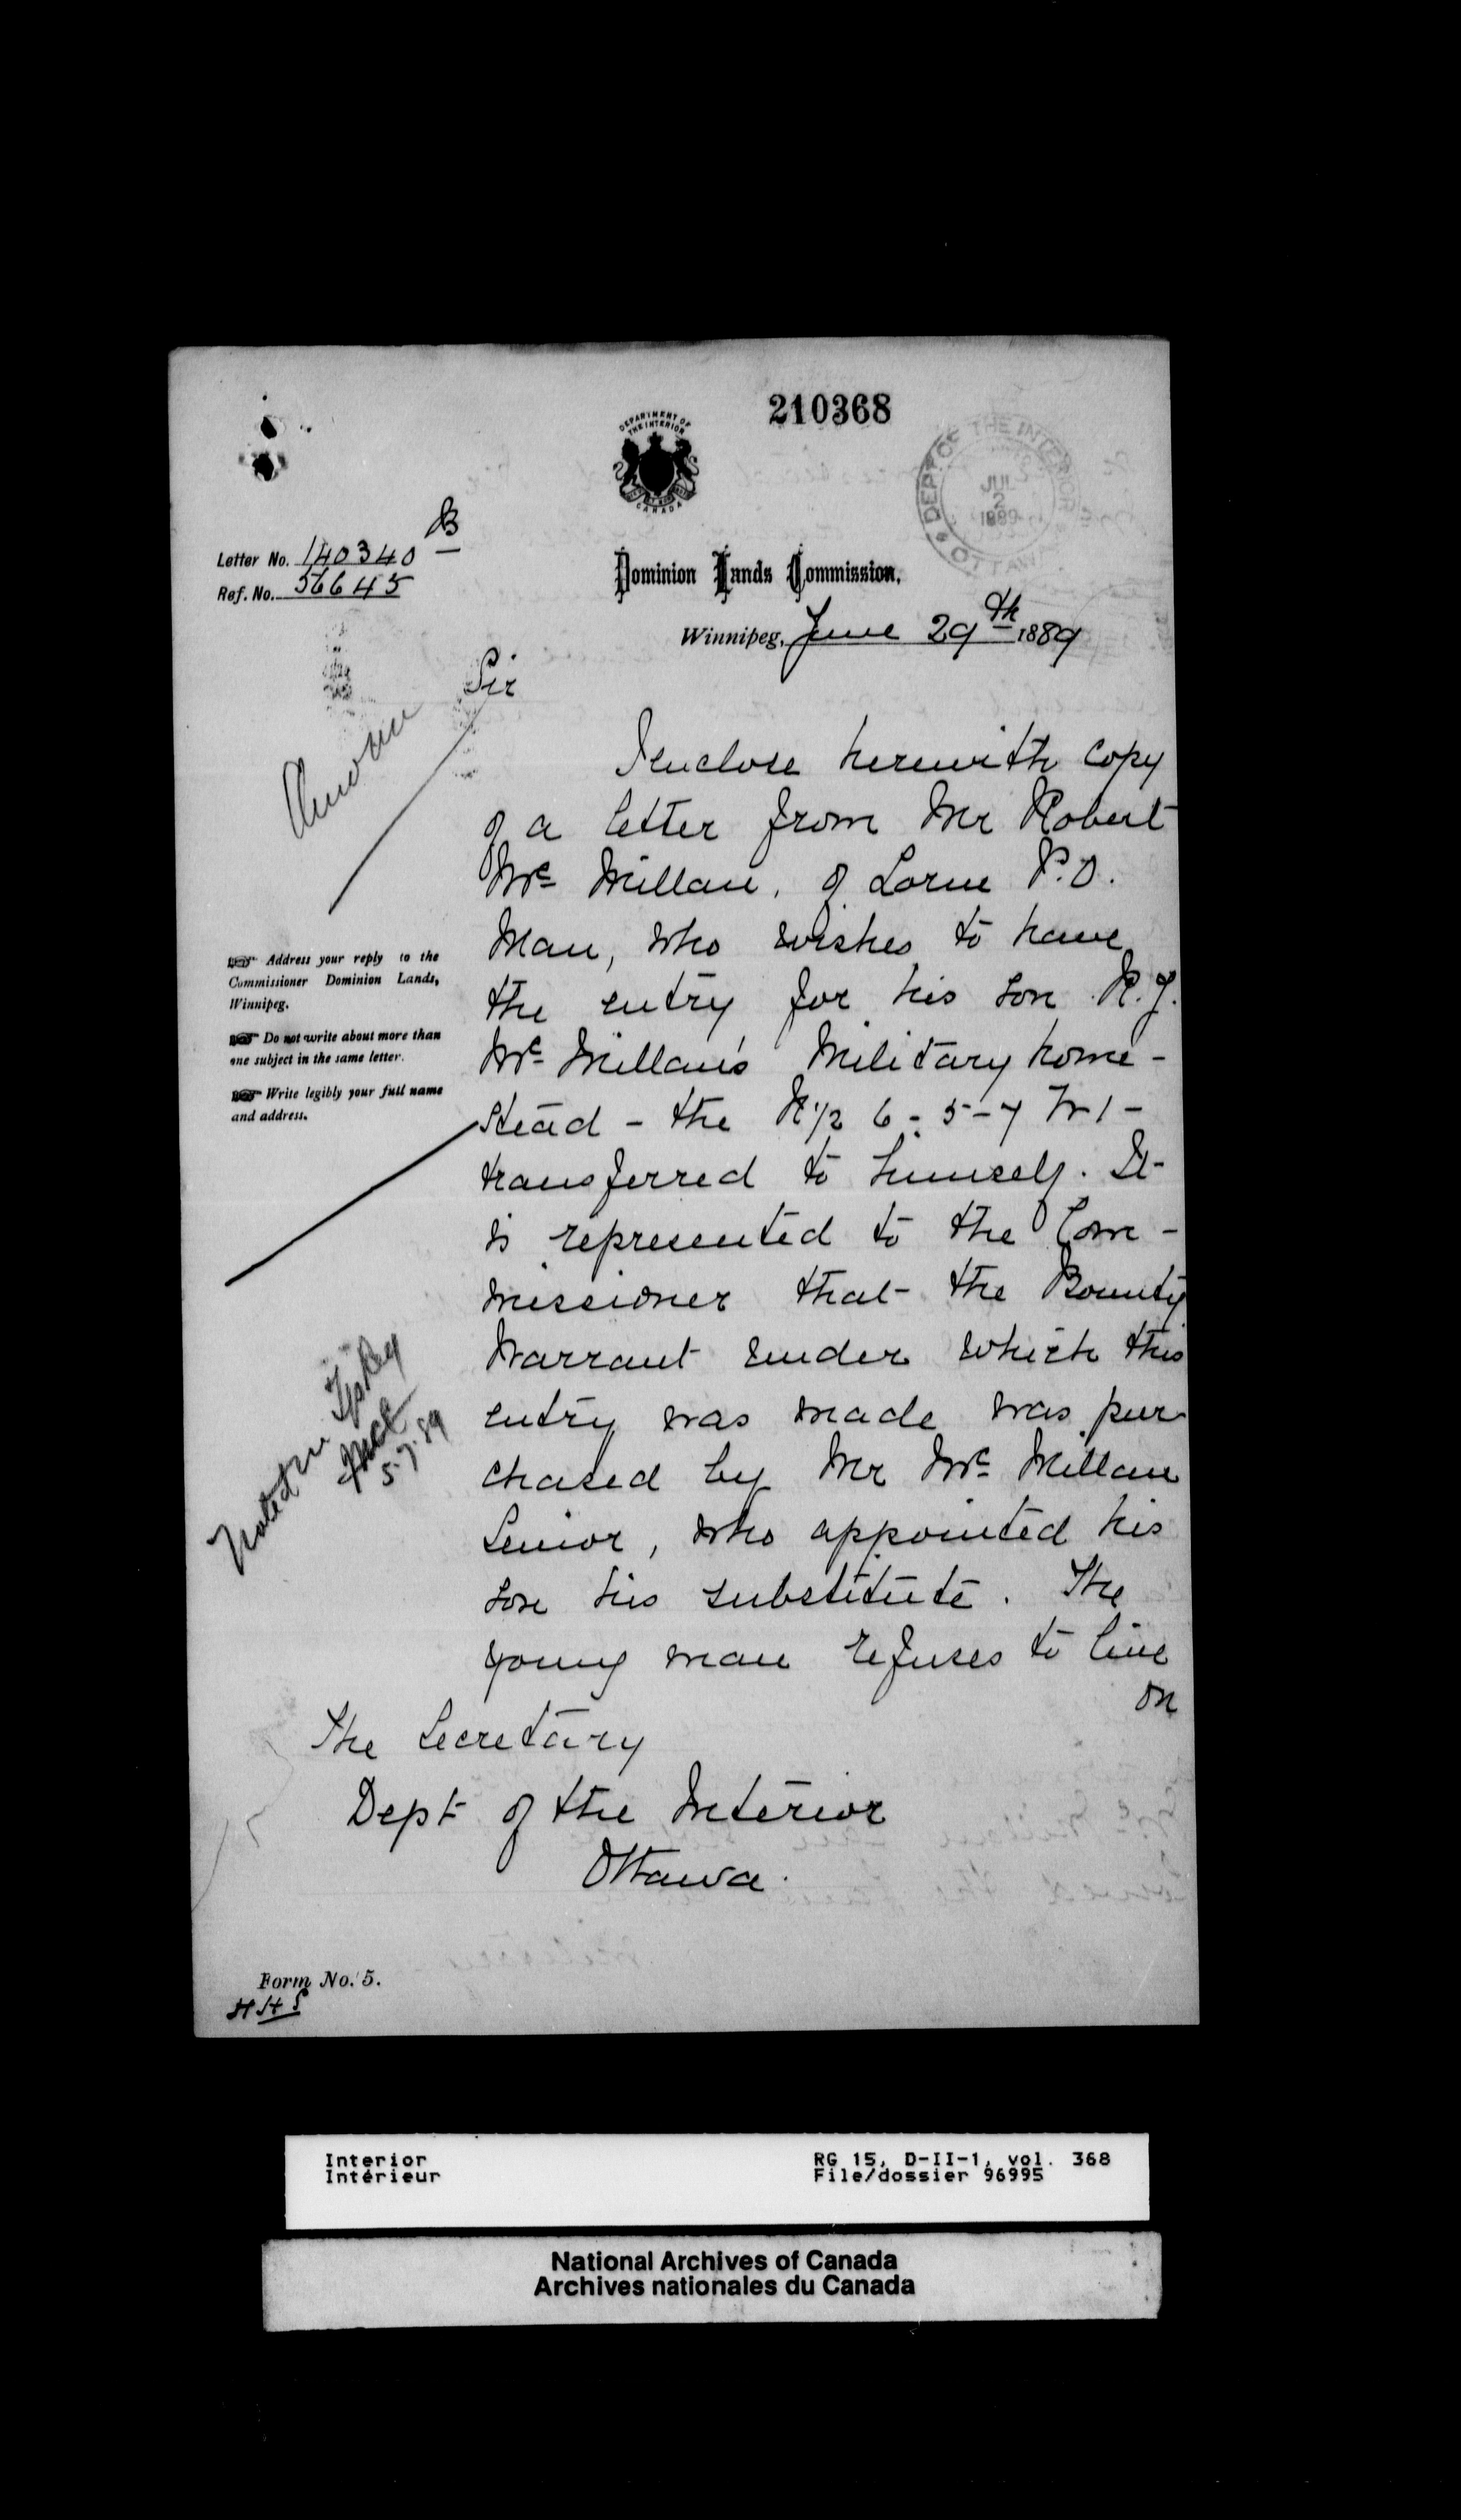 210368
DEPARTMENT OF
THE INTERIOR
CANADA
DEPT OF THE INTERIOR
JUL
2
1889
OTTAWA
B
Letter No. 140340
Ref. No. 56645
Dominion Lands Commission.
Winnipeg, June 29th 1889
Sir
I enclose herewith copy
of a letter from Mr Robert
Mc Millan, of Lorne P.O.
Man, who wishes to have
the entry for his son R.J.
Mc Millan's Military home-
stead - the N 1/2 6-5-7 W 1 -
transferred to himself. It
is represented to the Com-
missioner that the Bounty
Warrant under which this
entry was made was pur-
chased by Mr Mc Millan
Senior, who appointed his
son his substitute. The
young man refuses to live
on
The Secretary
Dept of the Interior
Ottawa.
Address your reply to the
Commissioner Dominion Lands,
Winnipeg.
Do not write about more than
one subject in the same letter.
Write legibly your full name
and address.
Noted in
5.7.89
Form No. 5.
HHS
Interior
Intérieur
RG 15, D-II-1, vol. 368
File/dossier 96995
National Archives of Canada
Archives nationales du Canada